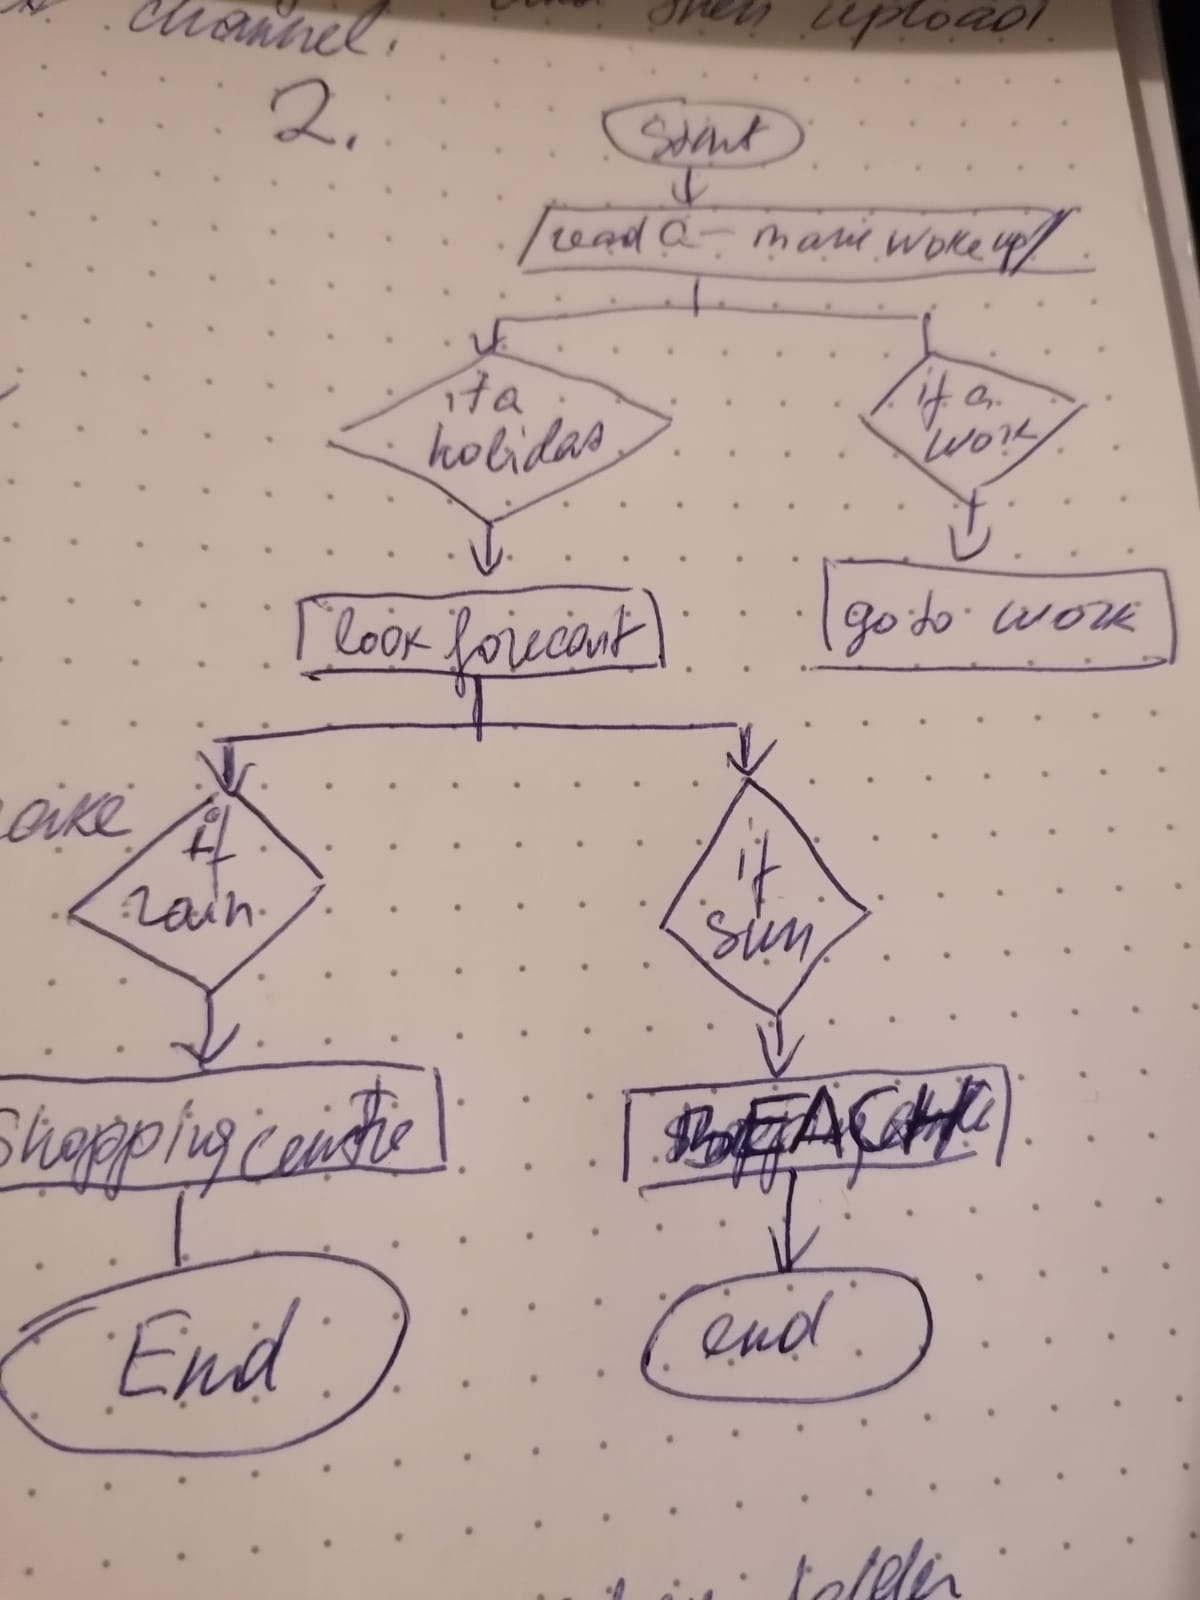 channel. and then upload
2.
Start
read a - marie woke up
if a
holiday
if a
work
look forecast
go to work
if
rain
if
sun
Shopping centre
BEACH
End
end
folder